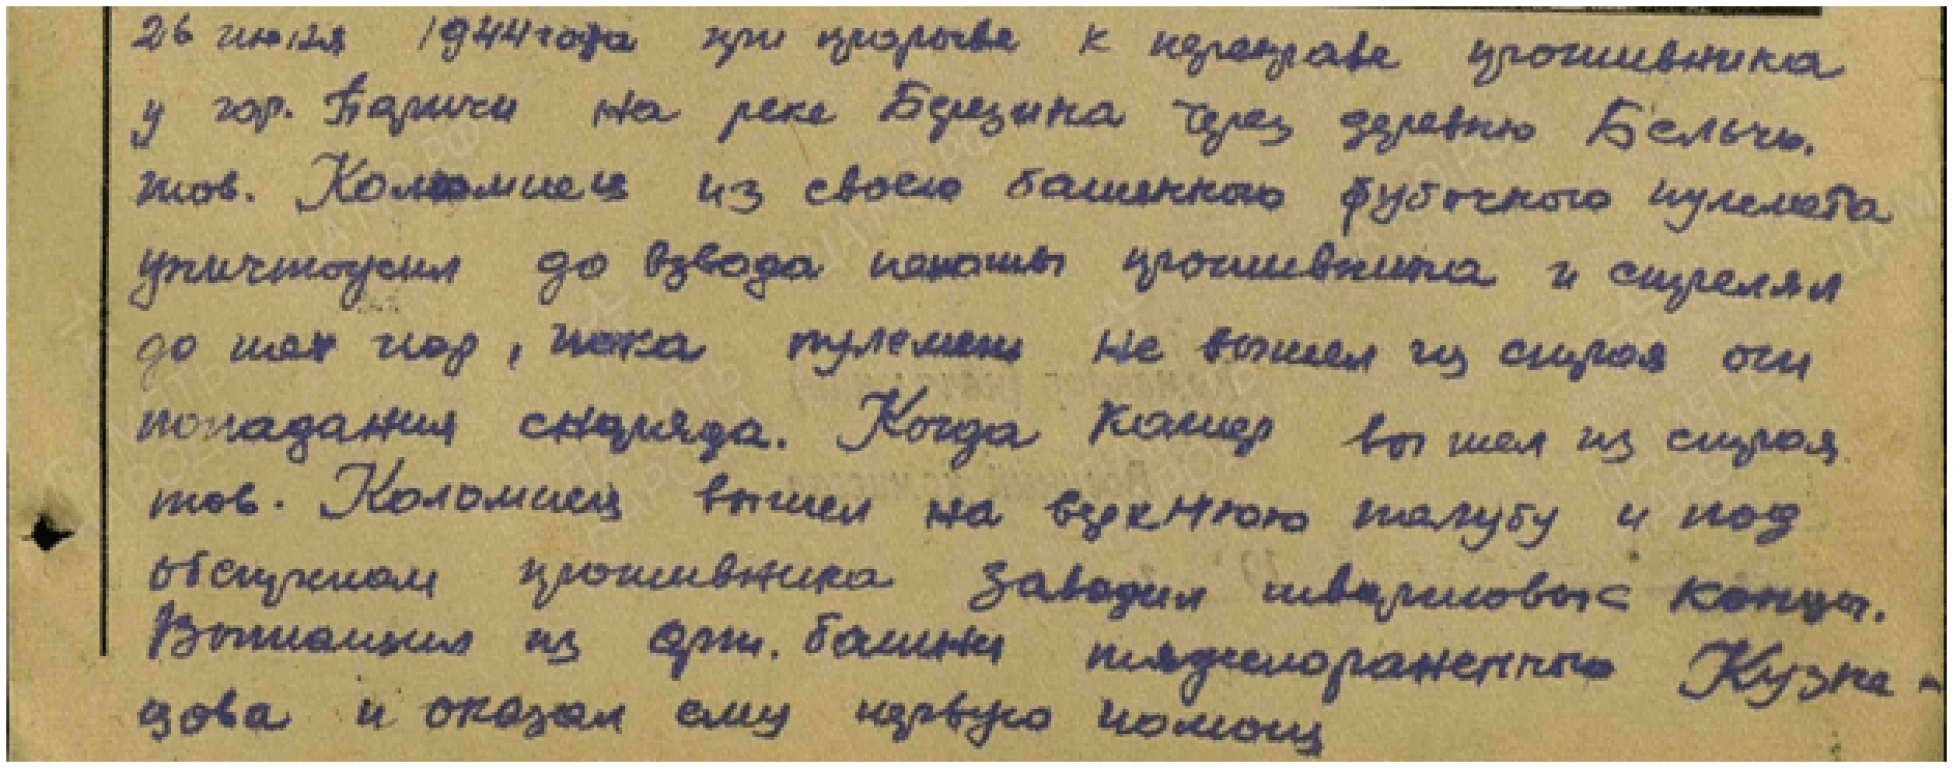 26 июня 1944 года при прорыве к переправе противника
у гор. Паричи на реке Березина через деревню Бельчо.
тов. Коломиец из своего башенного зубочного пулемета
уничтожил до взвода пехоты противника и стрелял
до тех пор, пока пулемет не вышел из строя от
попадания снаряда. Когда катер вышел из строя
тов. Коломиец вышел на верхнюю палубу и под
обстрелом противника заводил швартовые концы.
Вытащил из арт. башни тяжелораненного Кузне-
цова и оказал ему первую помощ